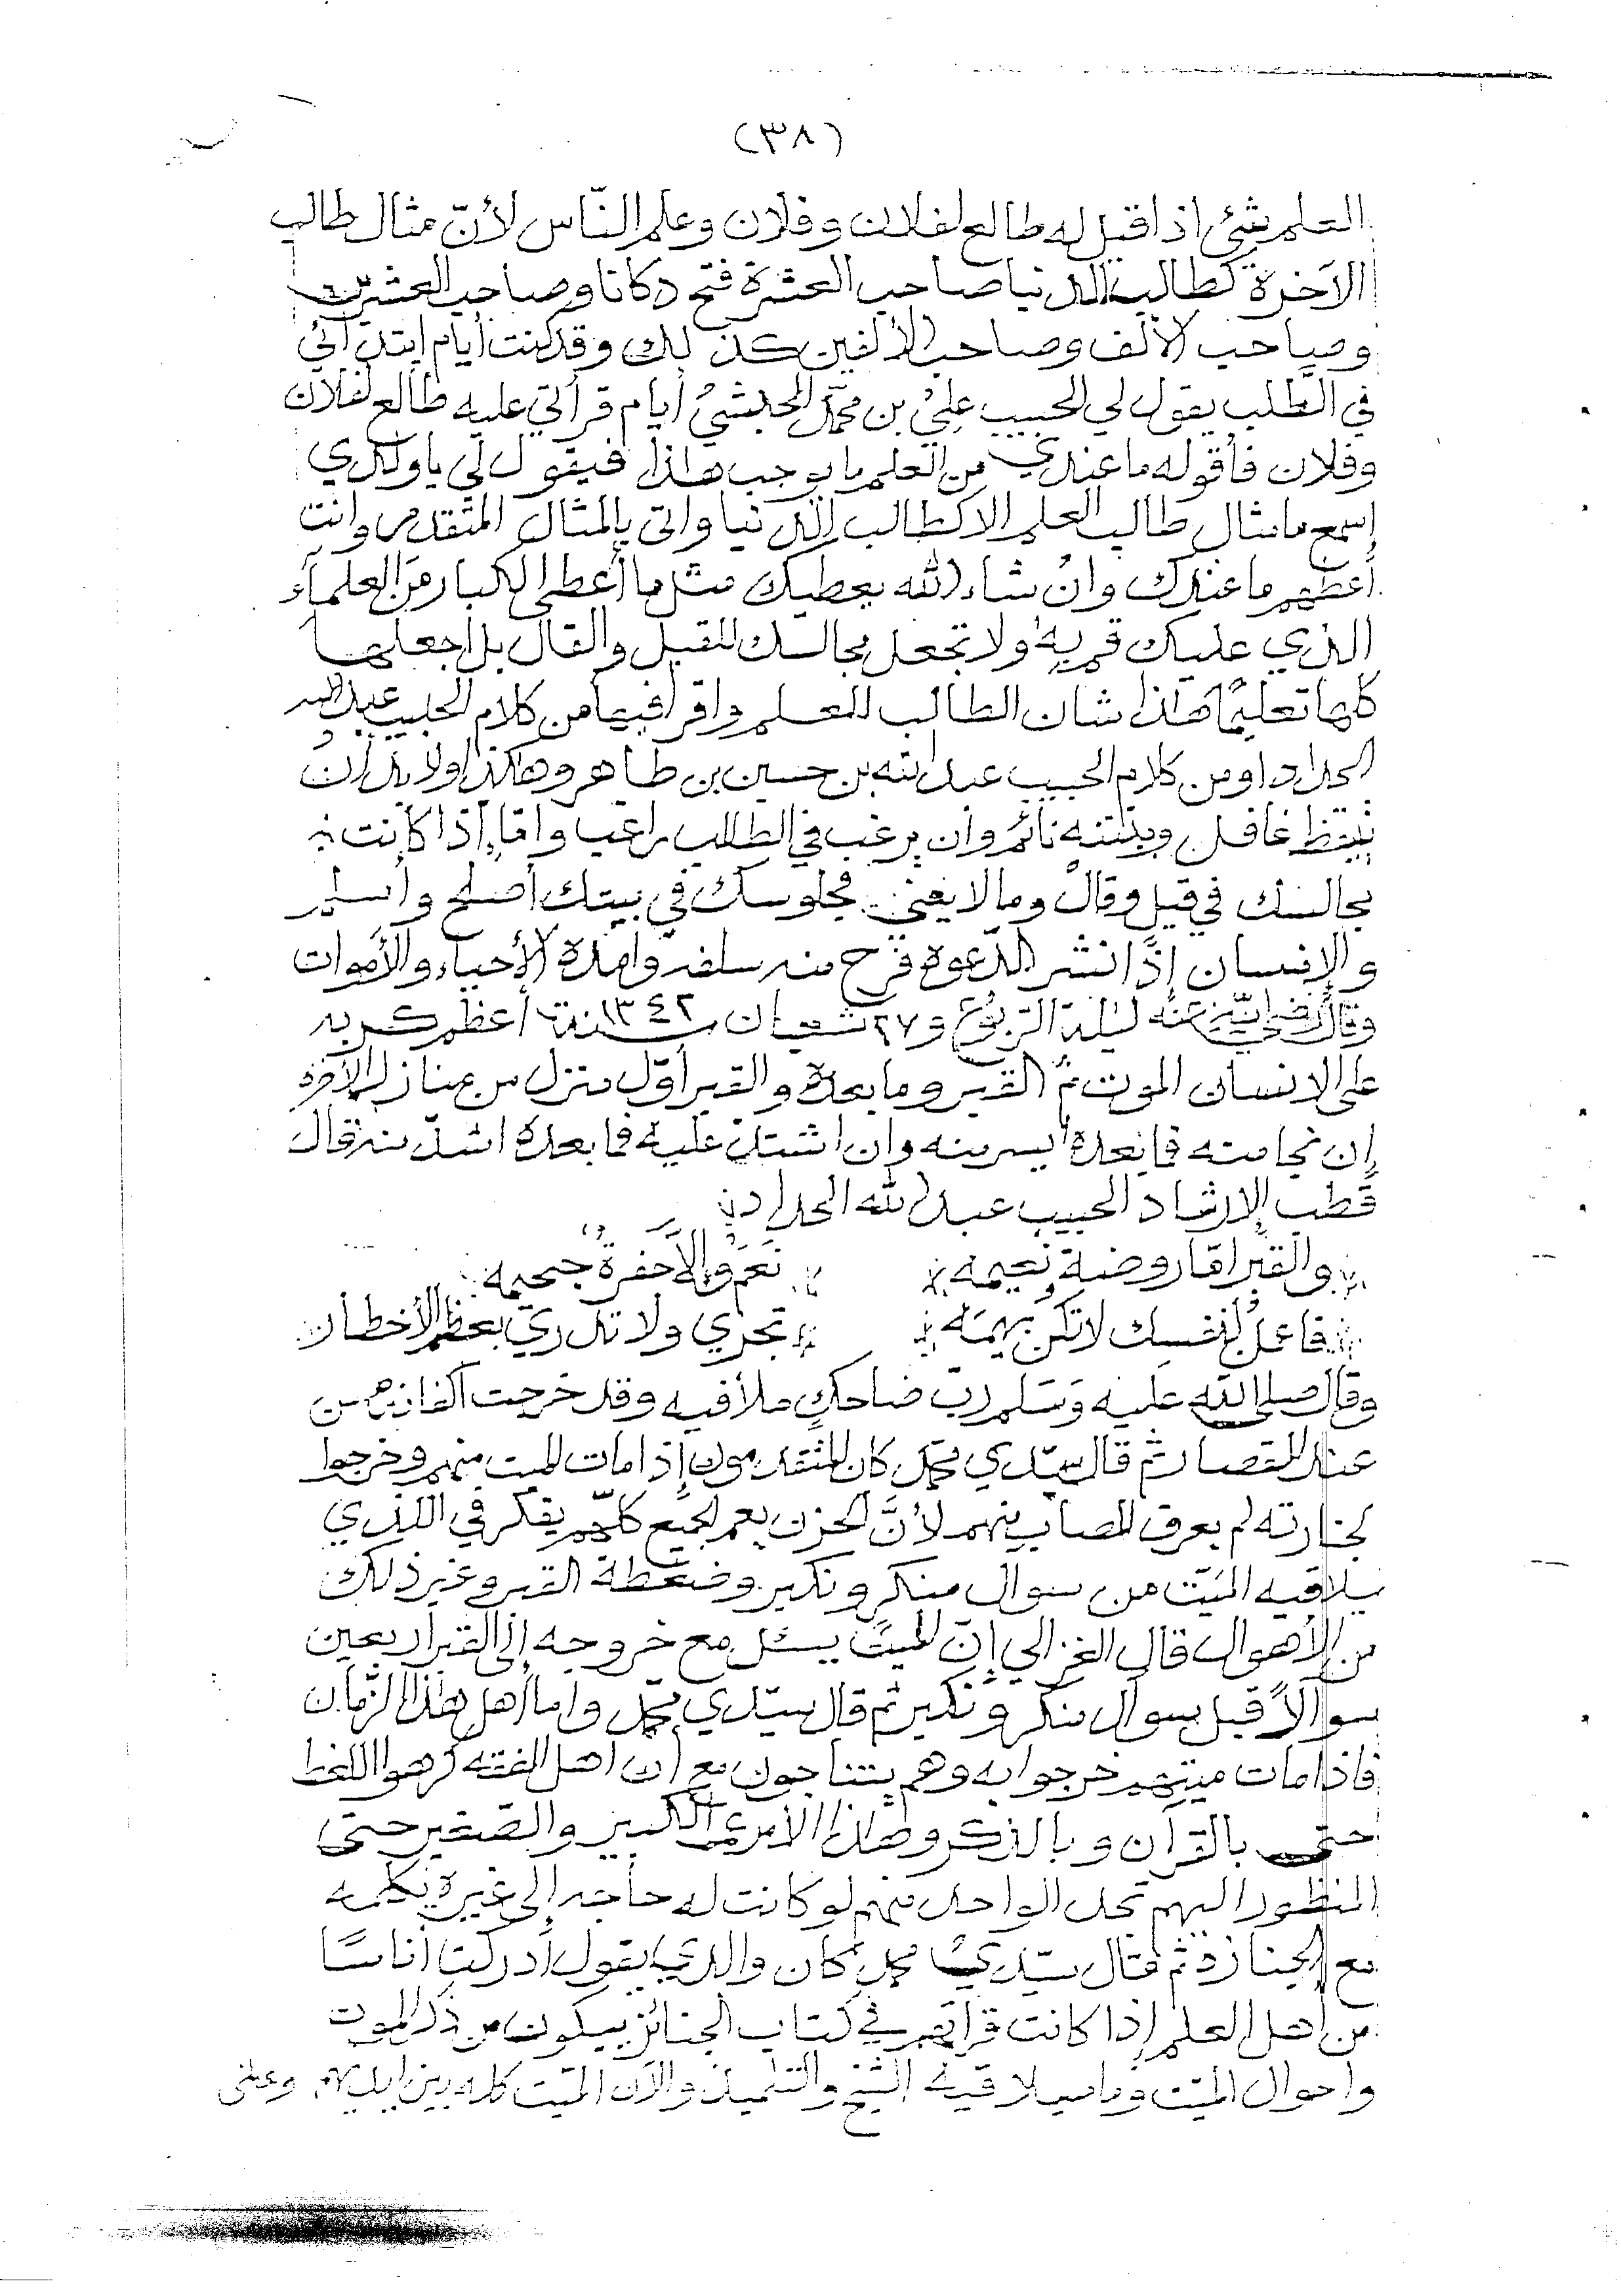 (٣٨)
العلم شئ اذا قيل له طالع لفلان وفلان وعلم النّاس لأنّ مثال طالب
الآخرة كطالب الدنيا صاحب العشرة فتح دكانا وصاحب العشرين
وصاحب الألف وصاحب الألفين كذلك وقد كنت أيام ابتدائي
في الطلب يقول لي الحبيب عليُ بن محمّد الحبشيُ أيام قرأتي عليه طالع لفلان
وفلان فأقوله ما عندي من العلم ما يوجب هاذا فيقول لي يا ولدي
إسمع ما مثال طالب العلم الا كطالب الدنيا واتى بالمثال المتقدم وانت
أعطهم ما عندك وانْ شاء الله يعطيك مثل ما أعطى الكبار من العلمآء
الذي عليك قربه ولا تجعل مجالسك للقيل والقال بل اجعلها
كلها تعليمًا هاذا شان الطالب للعلم واقرأ فيها من كلام الحبيب عبدالله
الحداد او من كلام الحبيب عبدالله بن حسين بن طاهر وهاكذا ولا بد أن
يتيقظ غافل وينتبه نائم وأن يرغب في الطلب راغب وامّا إذا كانت
مجالسك في قيل وقال وما لا يعني فجلوسك في بيتك أصلح وأسلم
والإنسان إذا نشر الدّعوة فرح منه سلفه وامدة الأحياء والأموات
وقال رضي الله عنه ليلة الربوع و٢٧ شعبان سنة ١٣٤٢ أعظم كربه
على الانسان الموت ثمّ القبر وما بعده والقبر أوّل منزل من منازل الآخرة
إن نجا منه فما بعده أيسر منه وان اشتد عليه فما بعده اشدّ منه قال
قطب الإرشاد الحبيب عبد الله الحداد
والقبر امّا روضة نعيمه نَعَمْ وإلاّ حفرة جحيمه
فاعمل لنفسك لا تكن بهيمه تجري ولا تدري بعظم الأخطار
وقال صلى الله عليه وَسَلم ربّ ضاحكٍ ملأ فيه وقد خرجت اكفانه من
عند القصار ثم قال سيّدي محمّد كان المتقدمون إذا مات الميت منهم وخرجوا
لجنازته لم يعرف المصاب منهم لأنّ الحزن يعم الجميع كلّهم يفكر في الّذي
يلاقيه الميّت من سوال منكر ونكير وضغطة القبر وغير ذلك
من الأهوال قال الغزالي إنّ الميتَ يسئل مع خروجه إلى القبر اربعين
سوالاً قبل سوال منكر ونكير ثم قال سيّدي محمّد واما أهل هاذا الزّمان
فاذا مات ميتهم خرجوا به وهم يتناجون مع أن اهل الفقه كرهوا اللغط
حتى بالقرآن وبالذكر وهاذا الأمر عم الكبير والصّغير حتى
المنظور اليهم تجد الواحد منهم لو كانت له حاجه إلى غيرة يكلمه
مع الجنازة ثم قال سيّدي محمد كان والدي يقول أدركت أناسًا
من أهل العلم إذا كانت قرأتهم في كتاب الجنائز يبكون من ذكر الموت
واحوال الميّت وما سيلاقيه الشيخ والتلميذ والآن الميّت كله بين ايديهم وعلى